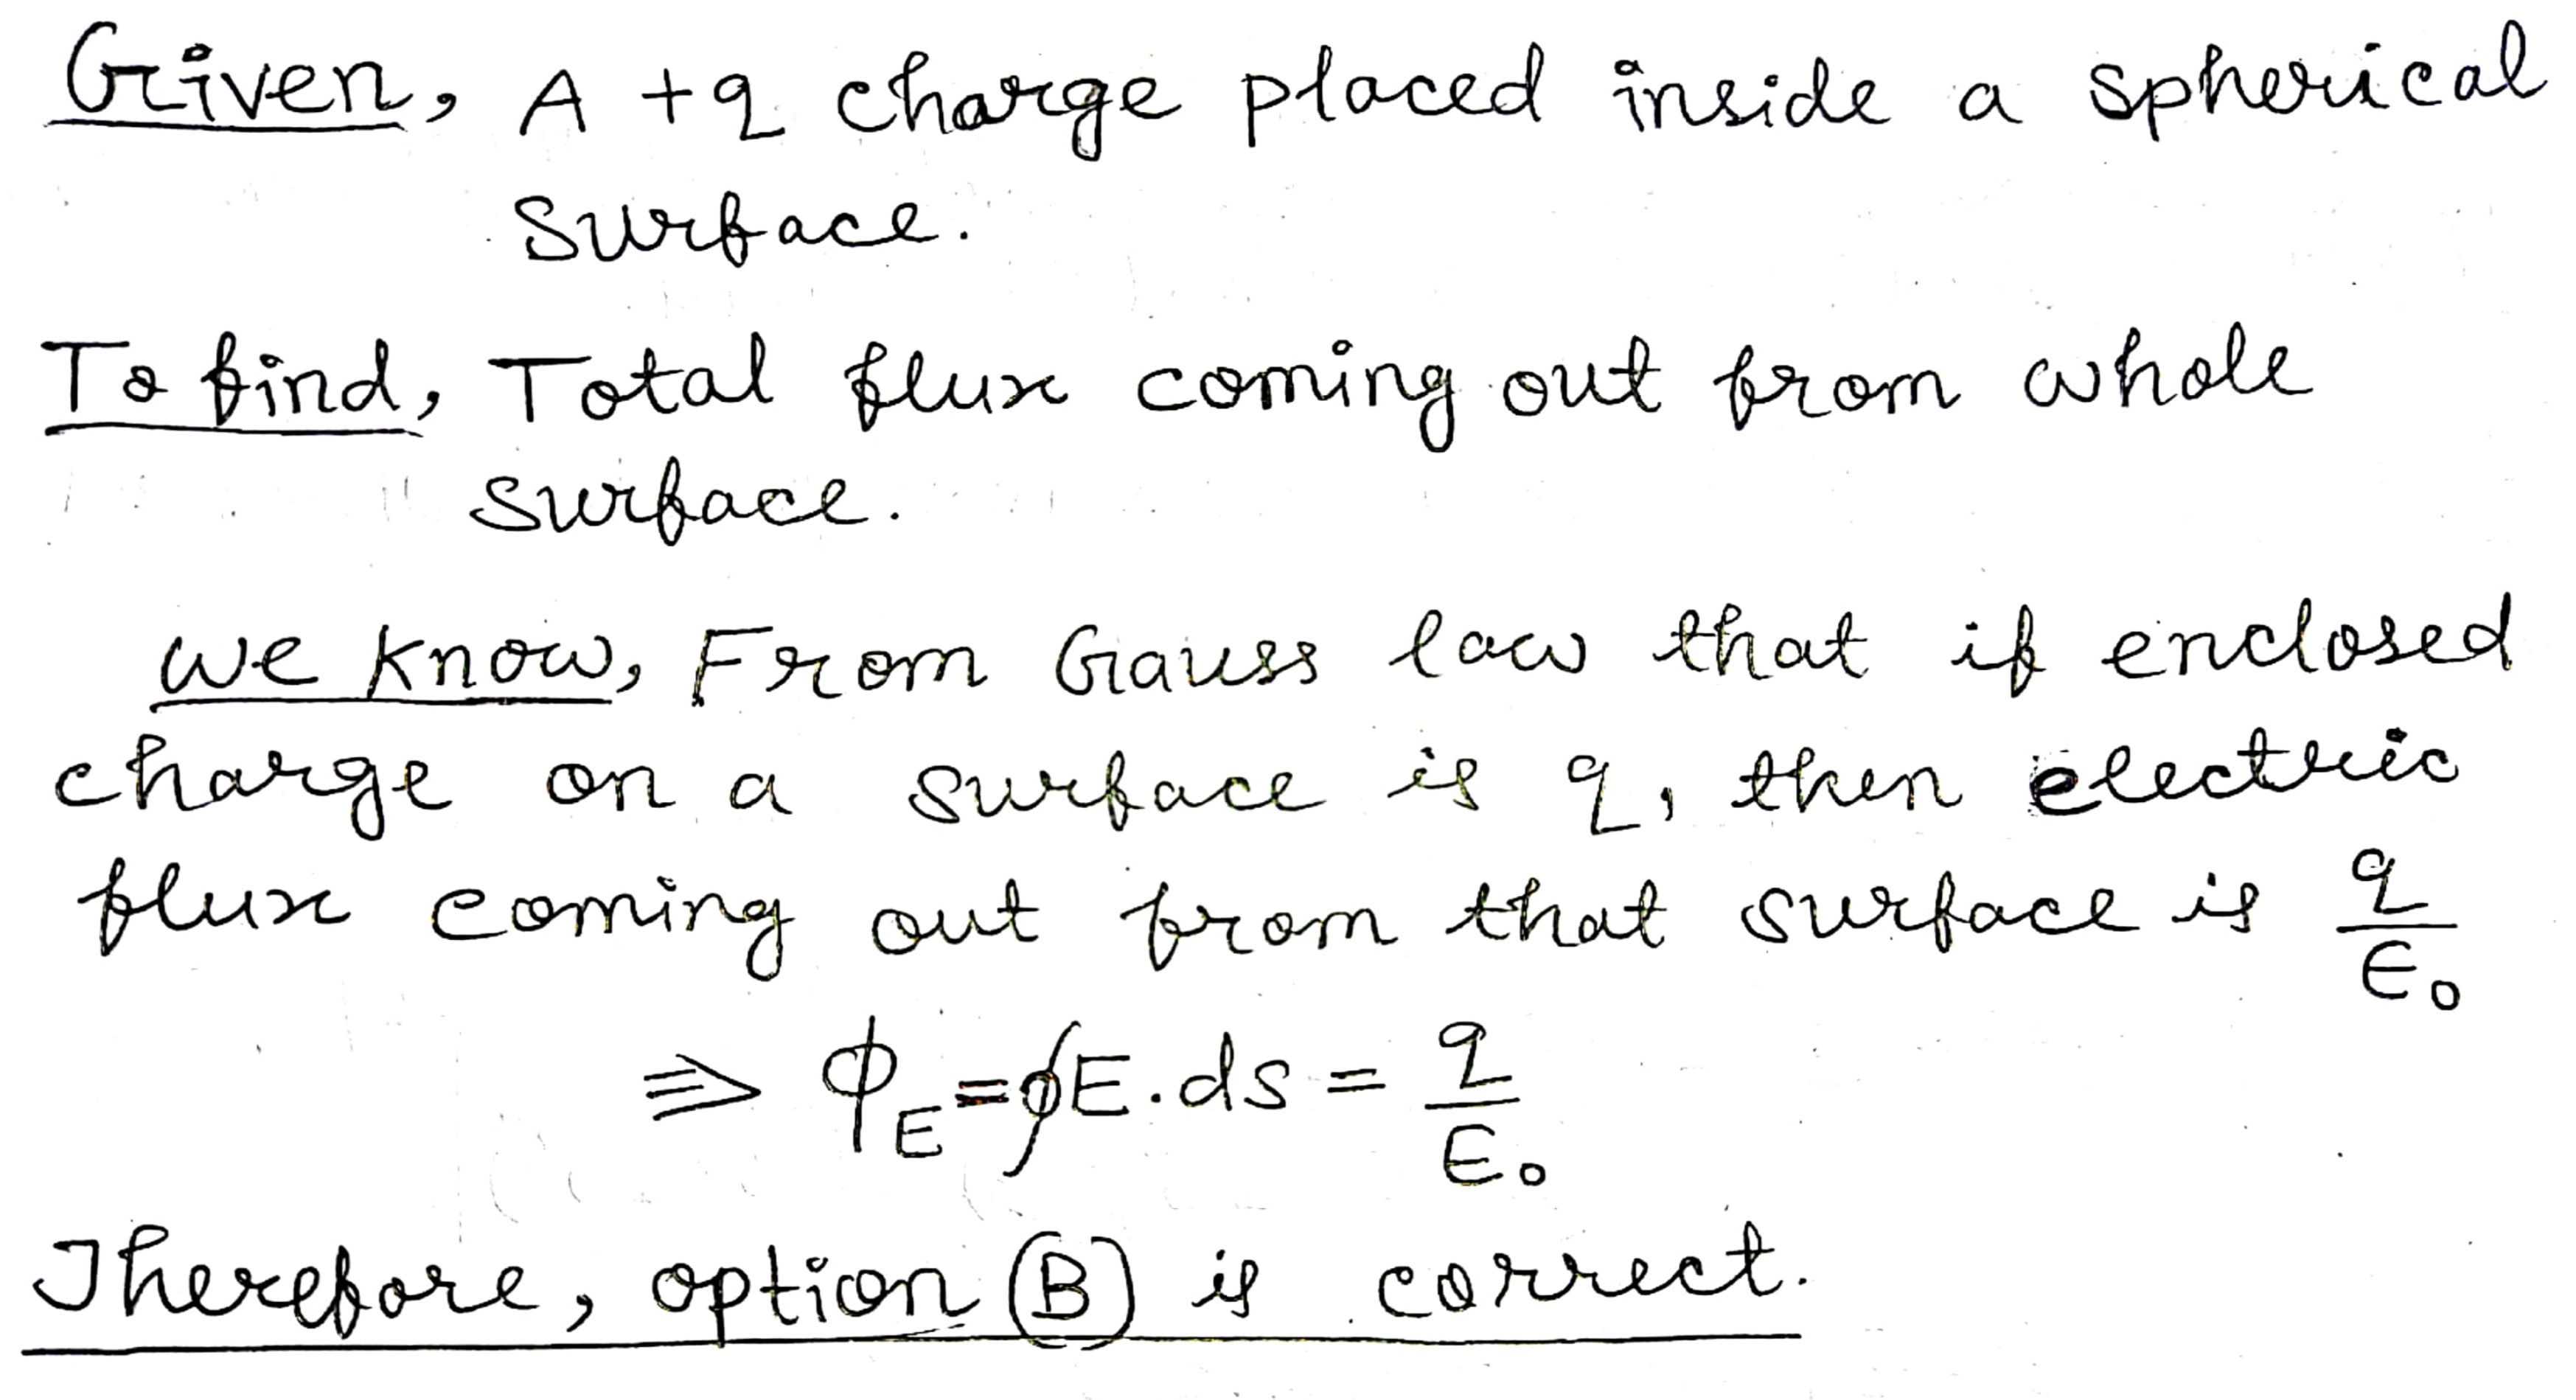 Given, A +q charge placed inside a spherical
surface.
To find, Total flux coming out from whole
surface.
We know, From Gauss law that if enclosed
charge on a surface is q, then electric
flux coming out from that surface is q/ϵ₀
⇒ ϕ_E = ∮E.ds = q/ϵ₀
Therefore, option (B) is correct.